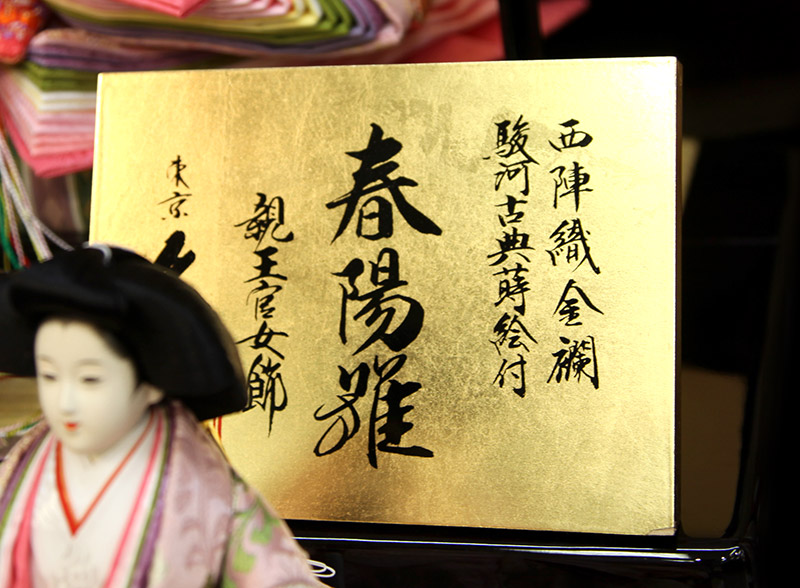 西陣織金襴
駿河古典蒔絵付
春陽雅
親王官女飾
東京